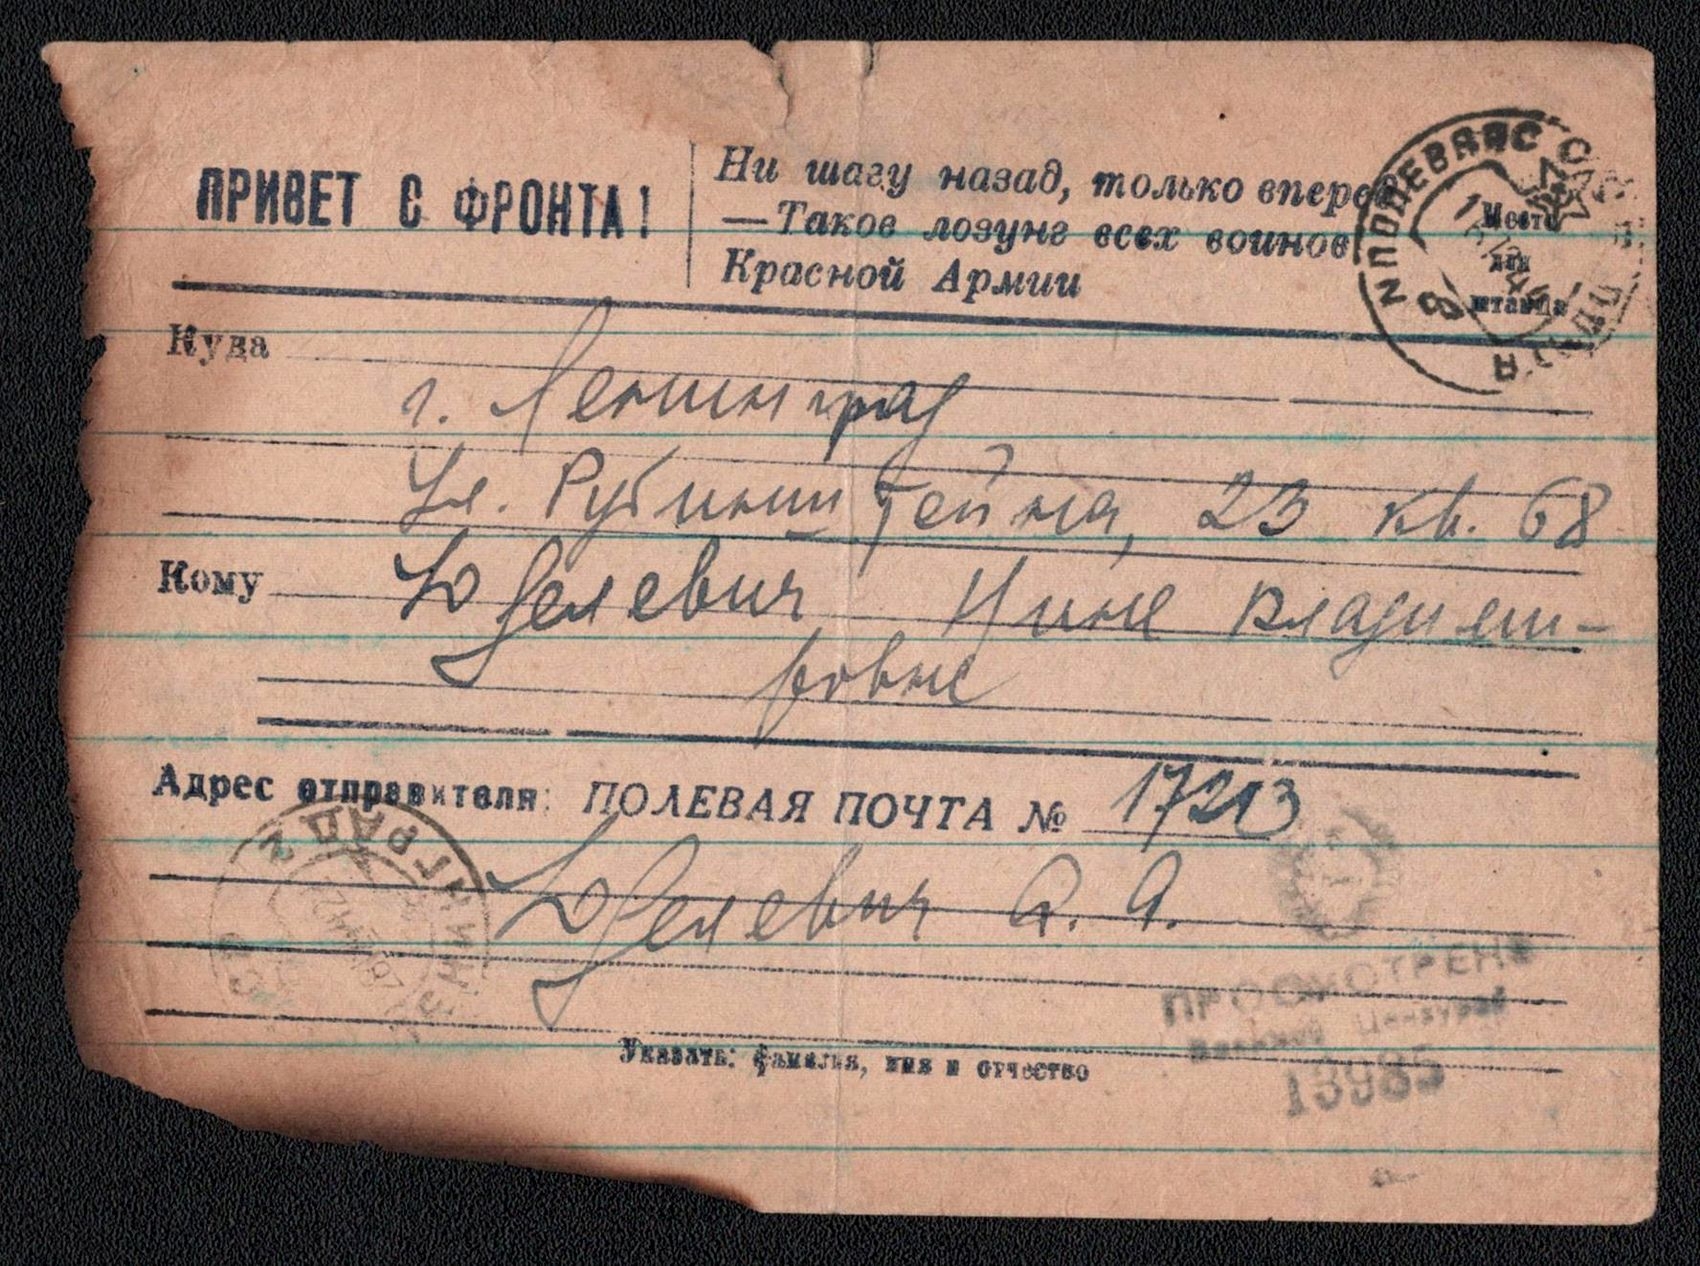 ПРИВЕТ С ФРОНТА!
Ни шагу назад, только вперед
—Таков лозунг всех воинов
Красной Армии
Место
для
штампа
Куда
г. Ленинград
ул. Рубинштейна, 23 кв. 68
Кому Юделевич Нине Владими-
ровне
Адрес отправителя: ПОЛЕВАЯ ПОЧТА № 17213
Юделевич А. А.
Указать: фамилия, имя и отчество
ПРОСМОТРЕНО
Военной Цензурой
13985